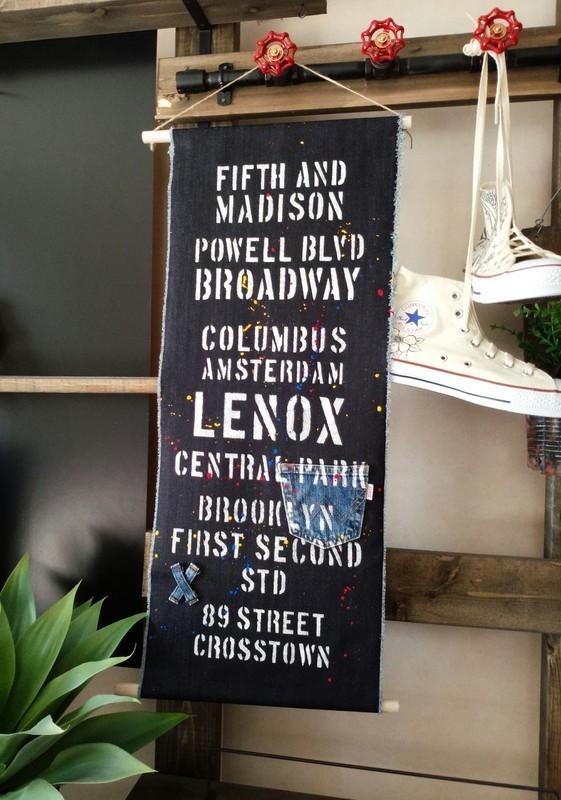 FIFTH AND
MADISON
POWELL BLVD
BROADWAY
COLUMBUS
AMSTERDAM
LENOX
CENTRAL PARK
BROOKLYN
FIRST SECOND
STD
89 STREET
CROSSTOWN